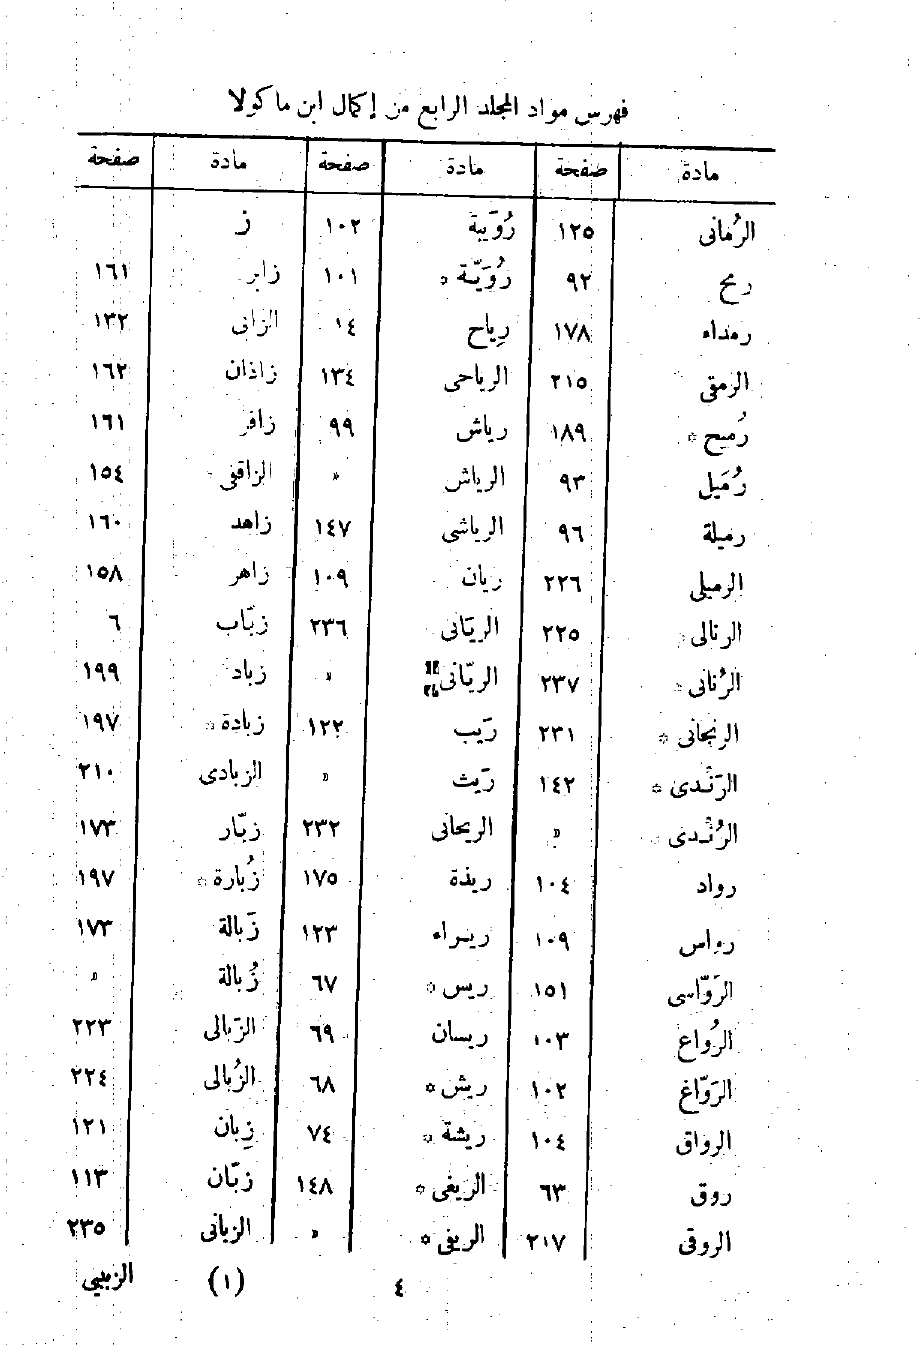 فهرس مواد المجلد الرابع من إكمال ابن ماكولا
مادة صفحة مادة صفحة مادة صفحة
الرُمانى ١٢٥ رُوَيبة ١٠٢ ز
رمح ٩٢ رُوَيّة ١٠١ زابر ١٦١
رمداء ١٧٨ رِياح ١٤ الزانى ١٣٢
الرمقى ٢١٥ الرياحى ١٣٤ زاذان ١٦٢
رُميح * ١٨٩ رياش ٩٩ زافر ١٦١
رُمَيل ٩٣ الرياش » الزاقفى ١٥٤
رميلة ٩٦ الرياشى ١٤٧ زاهد ١٦٠
الرميلى ٢٢٦ ريان ١٠٩ زاهر ١٥٨
الرنالى ٢٢٥ الريّانى ٢٣٦ زبّاب ٦
الرُنانى * ٢٣٧ الريّانى » زباد ١٩٩
الرنجانى * ٢٣١ رَيب ١٢٢ زبادة * ١٩٧
الرَنْدى * ١٤٢ رَيث » الزبادى ٢١٠
الرُنْدى » الريحانى ٢٣٢ زبّار ١٧٣
رواد ١٠٤ ريذة ١٧٥ زُبارة * ١٩٧
رواس ١٠٩ ريراء ١٢٣ زَبالة ١٧٣
الرَوّاسى ١٥١ ريس * ٦٧ زُبالة »
الرُواع ١٠٣ ريسان ٦٩ الزَبالى ٢٢٣
الرَوّاغ ١٠٢ ريش * ٦٨ الزُبالى ٢٢٤
الرواق ١٠٤ ريشة * ٧٤ زِبان ١٢١
روق ٦٣ الريفى * ١٤٨ زبّان ١١٣
الروقى ٢١٧ الريفى * » الزبانى ٢٣٥
٤ (١) الزبيبي